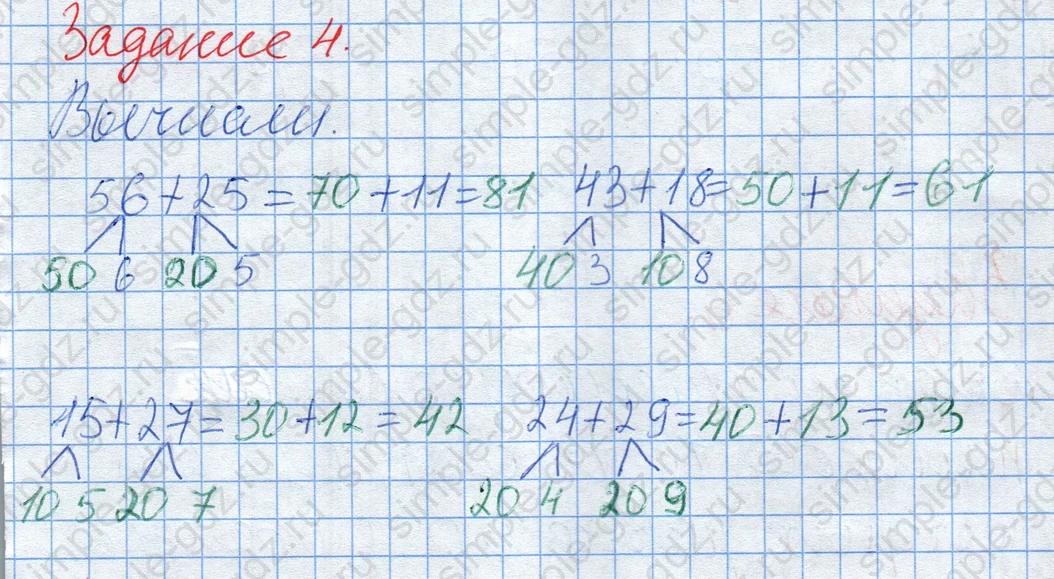 Задание 4.
Вычисли.
56+25=70+11=81 43+18=50+11=61
50 6 20 5 40 3 10 8
15+27=30+12=42 24+29=40+13=53
10 5 20 7 20 4 20 9
simple-gdz.ru